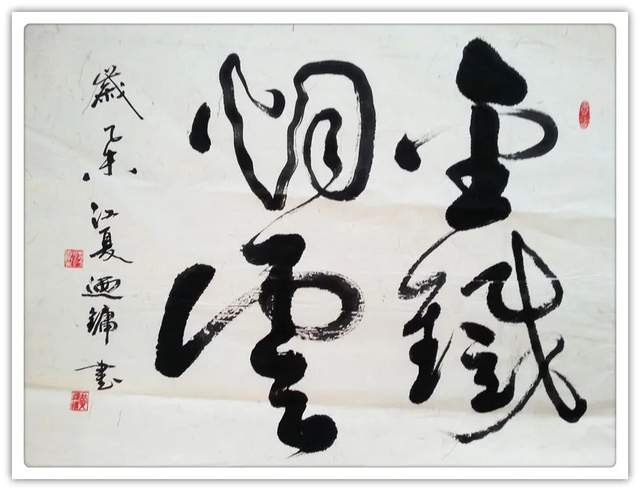 金鐵
烟雲
歲乙未江夏迺鏞書